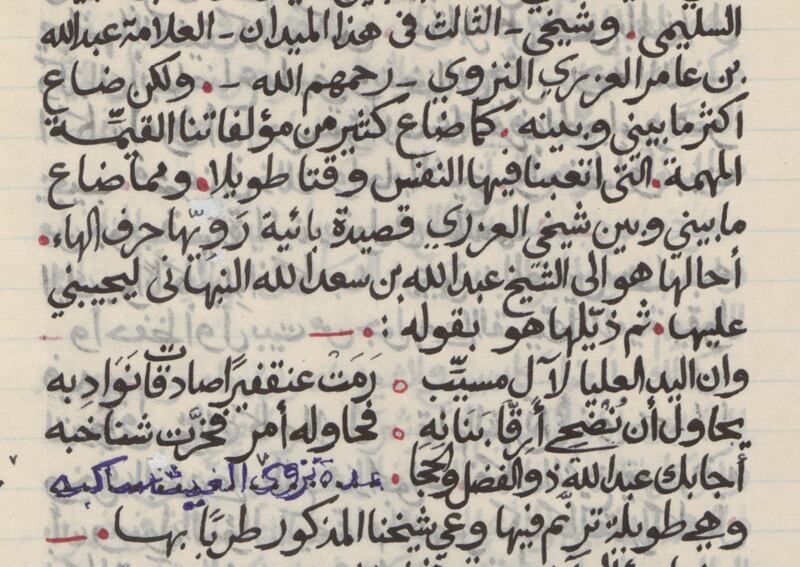 السليمي. وشيخي - الثالث في هذا الميدان - العلامة عبدالله
بن عامر العزري النزوي - رحمهم الله -. ولكن ضاع
اكثر ما بيني وبينه. كما ضاع كثير من مؤلفاتنا القيّمة
المهمة. التى اتعبنا فيها النفس وقتا طويلا. ومما ضاع
ما بيني وبين شيخي العزري قصيدة بائية رَوِيّها حرف الهاء.
أحالها هو الى الشيخ عبدالله بن سعد الله النبهانى ليجيبني
عليها. ثم ذيّلها هو بقوله :. —
وان اليد العليا لآل مسيّب . رَمَتْ عنقفيرًا صادقات نَوَادِبه
يحاول أن تُضحى أَرِقّا بَنَانِهِ . فحاوله أمر فخرَّت شناخبه
أجابك عبدالله ذو الفضل والحجا . بنزوى الغيث ساكبه
وهي طويلة ترنّم فيها وعي شيخنا المذكور طربًا بها. —